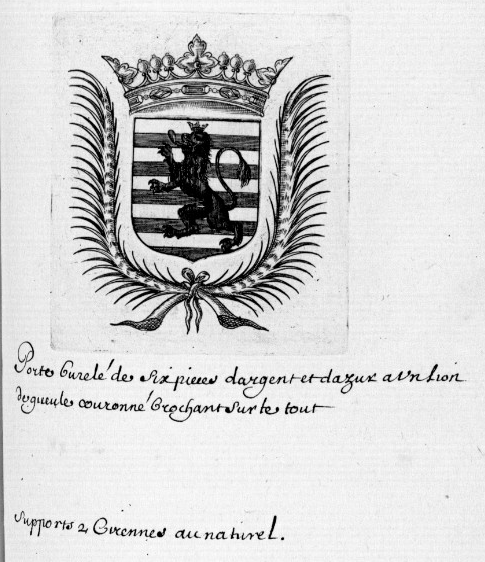 Porte burelé de six pieces dargent et dazur a un Lion
de gueule couronné brochant sur le tout
Supports 2 Cirennes au naturel.